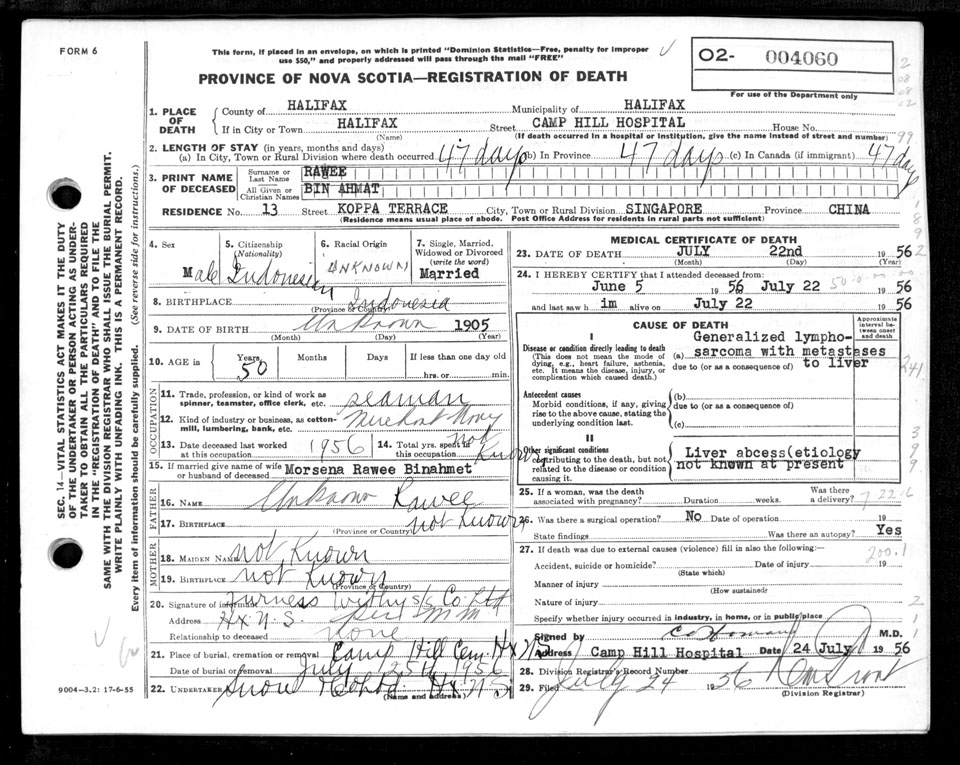 FORM 6
This form, if placed in an envelope, on which is printed "Dominion Statistics—Free, penalty for improper
use $50," and properly addressed will pass through the mail "FREE"
02- 004060
For use of the Department only
PROVINCE OF NOVA SCOTIA—REGISTRATION OF DEATH
1. PLACE OF DEATH
County of HALIFAX Municipality of HALIFAX
If in City or Town HALIFAX Street CAMP HILL HOSPITAL House No.
(Name) (If death occurred in a hospital or institution, give the name instead of street and number)
2. LENGTH OF STAY (in years, months and days)
(a) In City, Town or Rural Division where death occurred 47 days (b) In Province 47 days (c) In Canada (if immigrant) 47 days
3. PRINT NAME OF DECEASED
Surname or Last Name RAWEE
All Given or Christian Names BIN AHMAT
RESIDENCE No. 13 Street KOPPA TERRACE City, Town or Rural Division SINGAPORE Province CHINA
(Residence means usual place of abode. Post Office Address for residents in rural parts not sufficient)
4. Sex Male
5. Citizenship (Nationality) Indonesian
6. Racial Origin UNKNOWN
7. Single, Married, Widowed or Divorced (write the word) Married
8. BIRTHPLACE Indonesia
(Province or Country)
9. DATE OF BIRTH Unknown 1905
(Month) (Day) (Year)
10. AGE in Years 50 Months Days If less than one day old
hrs. or min.
OCCUPATION
11. Trade, profession, or kind of work as spinner, teamster, office clerk, etc. seaman
12. Kind of industry or business, as cotton-mill, lumbering, bank, etc. Merchant Navy
13. Date deceased last worked at this occupation 1956
14. Total yrs. spent in this occupation not known
15. If married give name of wife or husband of deceased Morsena Rawee Binahmet
FATHER
16. NAME Unknown Rawee
17. BIRTHPLACE not known
(Province or Country)
MOTHER
18. MAIDEN NAME not known
19. BIRTHPLACE not known
(Province or Country)
20. Signature of informant Furness Withy s/s Co Ltd
Address Hx N.S.
Relationship to deceased none
21. Place of burial, cremation or removal Camp Hill Cem. Hx NS
Date of burial or removal July 25th 1956
22. UNDERTAKER Snow & Co Ltd Hx NS
(Name and Address)
MEDICAL CERTIFICATE OF DEATH
23. DATE OF DEATH JULY 22nd 1956
(Month) (Day) (Year)
24. I HEREBY CERTIFY that I attended deceased from:
June 5 1956 July 22 1956
and last saw him alive on July 22 1956
CAUSE OF DEATH
Approximate interval between onset and death
I
Disease or condition directly leading to death
(This does not mean the mode of dying, e.g., heart failure, asthenia, etc. It means the disease, injury, or complication which caused death.)
(a) Generalized lympho-
sarcoma with metastases
to liver
due to (or as a consequence of)
Antecedent causes
Morbid conditions, if any, giving rise to the above cause, stating the underlying condition last.
(b)
due to (or as a consequence of)
(c)
II
Other significant conditions
contributing to the death, but not related to the disease or condition causing it.
Liver abcess(etiology
not known at present
25. If a woman, was the death associated with pregnancy? Duration weeks. Was there a delivery?
26. Was there a surgical operation? No Date of operation 19
State findings Was there an autopsy? Yes
27. If death was due to external causes (violence) fill in also the following:—
Accident, suicide or homicide? Date of injury 19
(State which)
Manner of injury
(How sustained)
Nature of injury
Specify whether injury occurred in industry, in home, or in public place
Signed by M.D.
Address Camp Hill Hospital Date 24 July 1956
28. Division Registrar's Record Number
29. Filed July 24 1956
(Division Registrar)
SEC. 14—VITAL STATISTICS ACT MAKES IT THE DUTY
OF THE UNDERTAKER OR PERSON ACTING AS UNDER-
TAKER TO OBTAIN ALL THE PARTICULARS REQUIRED
IN THE "REGISTRATION OF DEATH" AND TO FILE THE
SAME WITH THE DIVISION REGISTRAR WHO SHALL ISSUE THE BURIAL PERMIT.
WRITE PLAINLY WITH UNFADING INK. THIS IS A PERMANENT RECORD.
Every item of information should be carefully supplied. (See reverse side for instructions.)
9004-3.2: 17-6-55